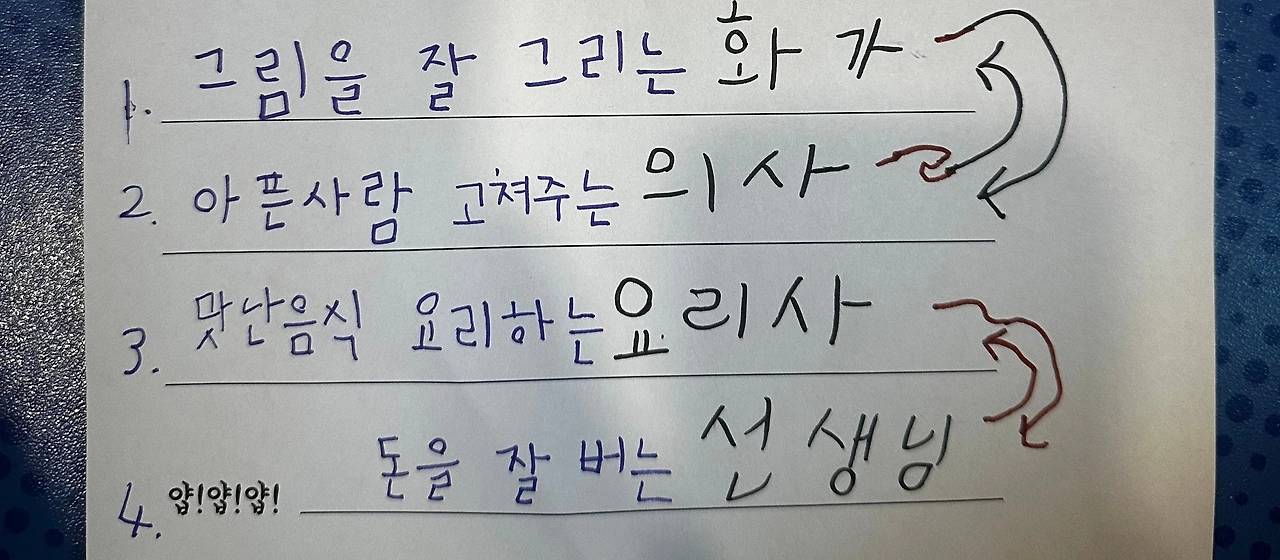 1. 그림을 잘 그리는 화가
2. 아픈사람 고쳐주는 의사
3. 맛난음식 요리하는요리사
4. 얍!얍!얍! 돈을 잘 버는 선생님